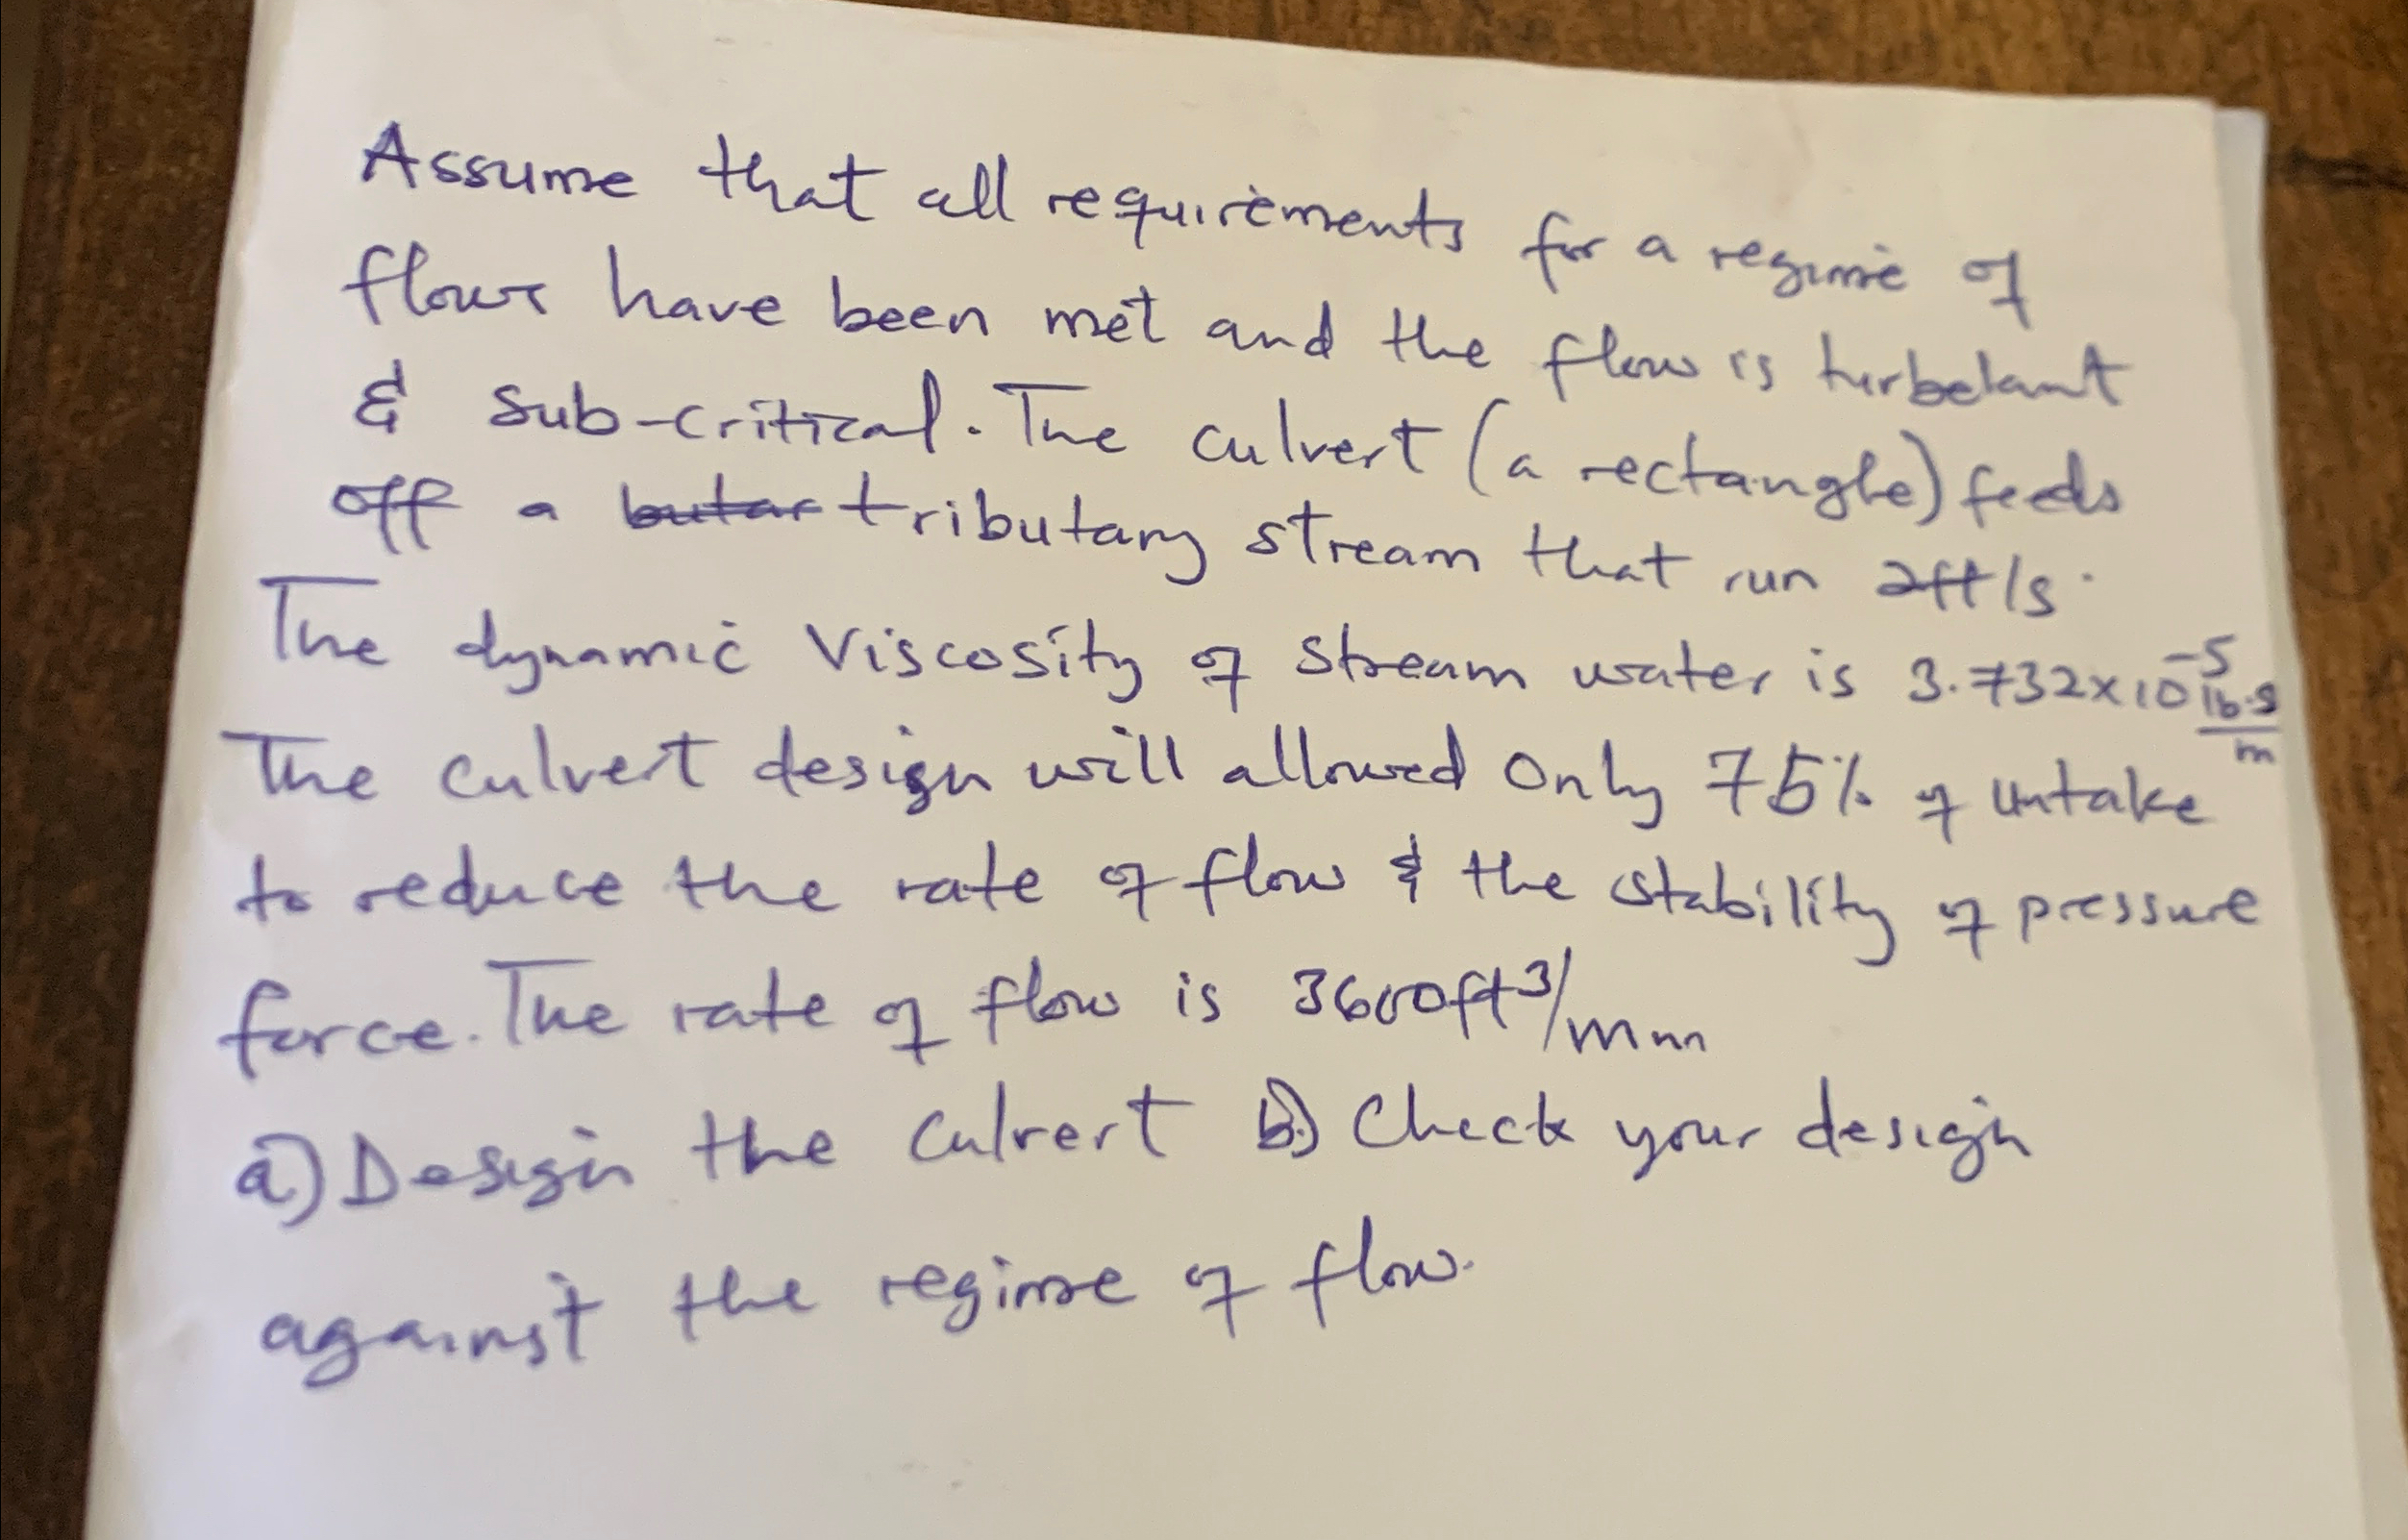 Assume that all requirements for a regime of
flows have been met and the flow is turbelant
& sub-critical. The culvert (a rectangle) feeds
off a butar tributary stream that run 2ft/s.
The dynamic Viscosity of stream water is 3.732x10^-5 lb.s/m
The culvert design will allowed only 75% of intake
to reduce the rate of flow & the stability of pressure
force. The rate of flow is 3600ft^3/min
a) Design the culvert b.) Check your design
against the regime of flow.